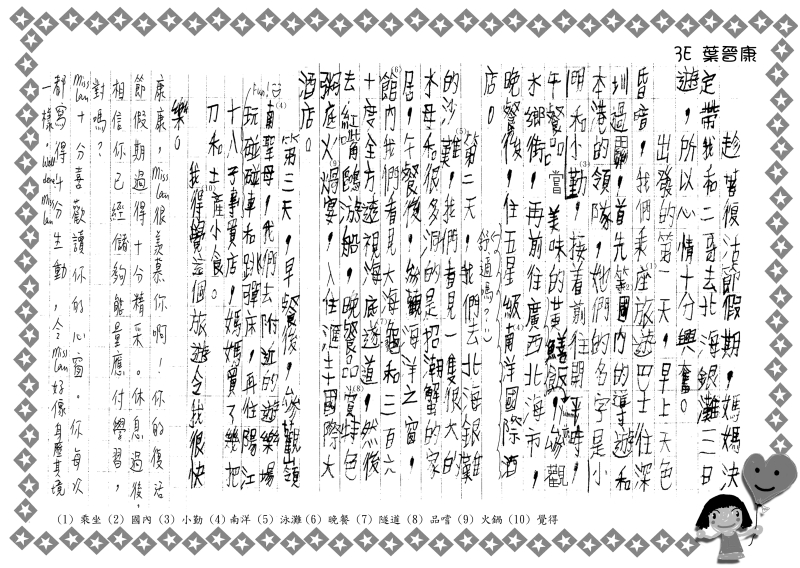 3E 葉晉康
趁著復活節假期，媽媽決
定帶我和二哥去北海銀灘三日
遊，所以心情十分興奮。
出發的第一天，早上天色
昏暗，我們乘座旅遊巴士往深
圳過關，首先等國內的導遊和
本港的領隊，她們的名字是小
明和小勤，接着前往開平時，
午餐品嘗美味的黃鱔飯，參觀
水鄉街，再前往廣西北海市，
晚餐後，住五星級南洋國際酒
店。
舒適嗎？
第二天，我們去北海銀灘
的沙灘，我們看見一隻很大的
水母和很多洞的是招潮蟹的家
居，午餐後，參觀海洋之窗，
館內我們看見大海龜和三百六
十度全方透視海底遂道，然後
去紅嘴鷗游船，晚餐品賞特色
粥底火煱宴，入住匯丰國際大
酒店。
第三天，早餐後，參觀嶺
南聖母，我們去附近的遊樂場
Fun!
玩碰碰車和跳彈床，再往陽江
十八子專買店，媽媽買了幾把
刀和土產小食。
我得覺這個旅遊令我很快
樂。
康康，Miss Lan很羨慕你啊！你的復活
節假期過得十分精采。休息過後，
相信你已經儲夠能量應付學習，
對嗎？
Miss Lan十分喜歡讀你的心窗。你每次
都寫得十分生動，令Miss Lan好像身歷其境
一樣。Well done! Miss Lan
(1) 乘坐 (2) 國內 (3) 小勤 (4) 南洋 (5) 泳灘 (6) 晚餐 (7) 隧道 (8) 品嚐 (9) 火鍋 (10) 覺得